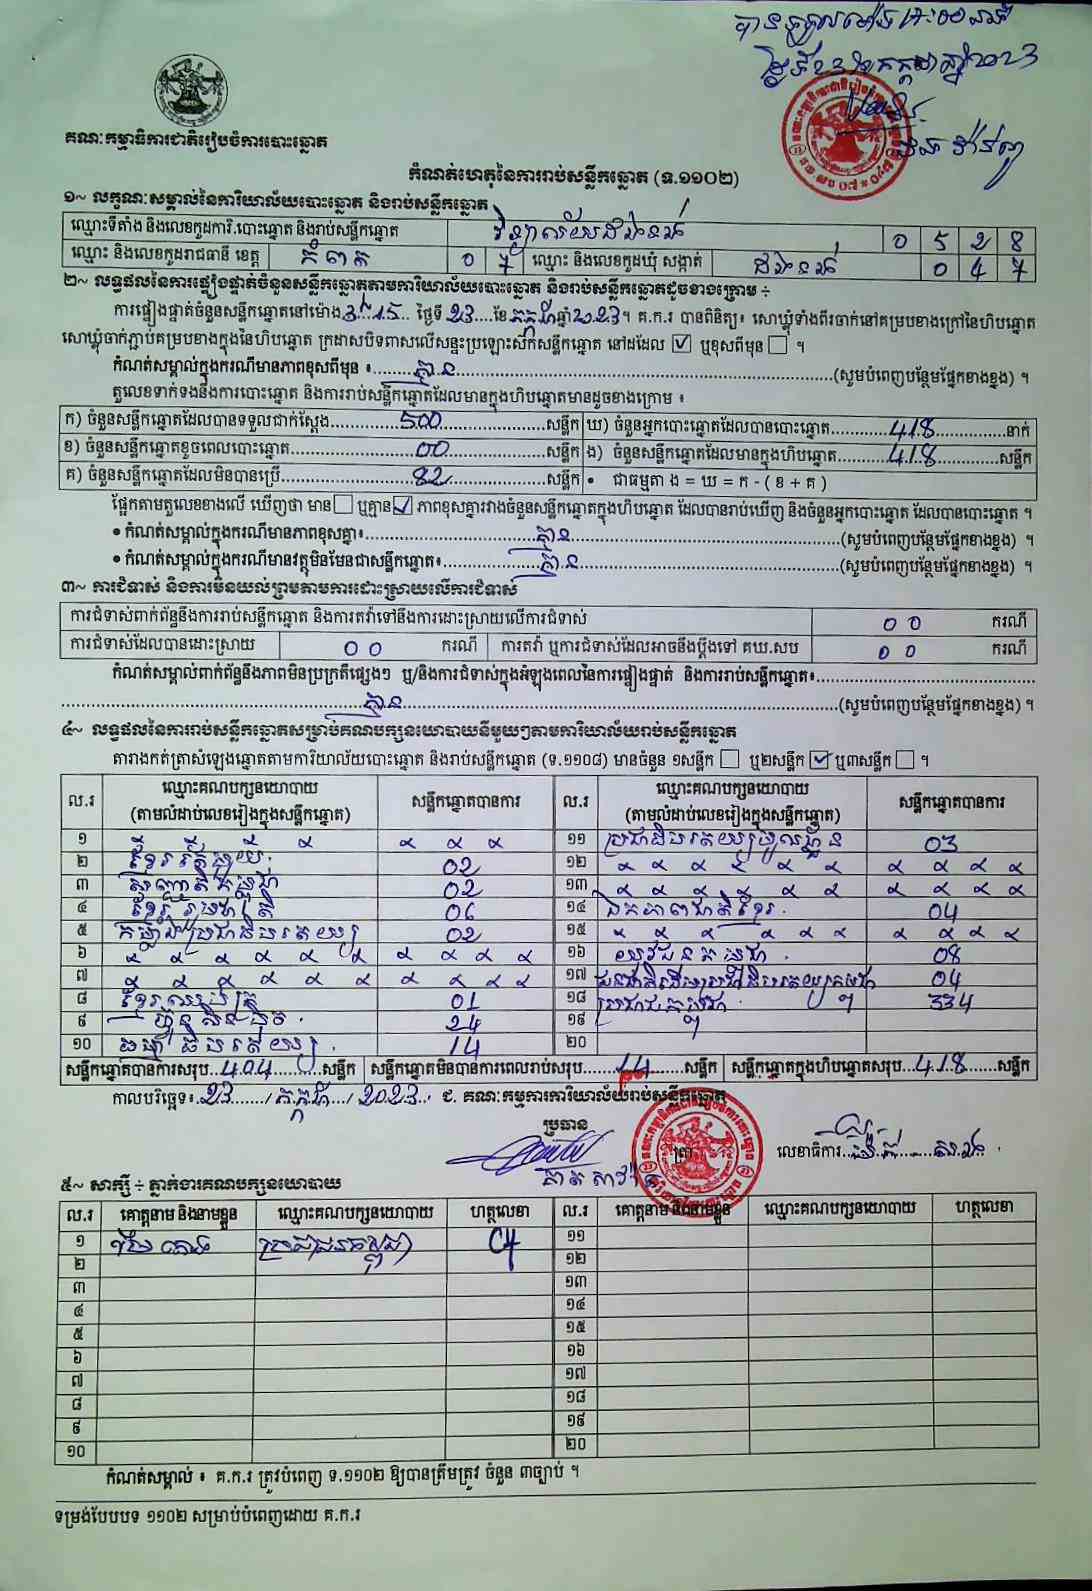 គណៈកម្មាធិការជាតិរៀបចំការបោះឆ្នោត
កំណត់ហេតុនៃការរាប់សន្លឹកឆ្នោត (ទ.១១០២)
១~ លក្ខណៈសម្គាល់នៃការិយាល័យបោះឆ្នោត និងរាប់សន្លឹកឆ្នោត
ឈ្មោះទីតាំង និងលេខកូដការិ.បោះឆ្នោត និងរាប់សន្លឹកឆ្នោត 0 5 2 8
ឈ្មោះ និងលេខកូដរាជធានី ខេត្ត កំពត 0 7 ឈ្មោះ និងលេខកូដឃុំ សង្កាត់ 0 4 7
២~ លទ្ធផលនៃការផ្ទៀងផ្ទាត់ចំនួនសន្លឹកឆ្នោតតាមការិយាល័យបោះឆ្នោត និងរាប់សន្លឹកឆ្នោតដូចខាងក្រោម ÷
ការផ្ទៀងផ្ទាត់ចំនួនសន្លឹកឆ្នោតនៅម៉ោង 3:15 ថ្ងៃទី 23 ខែ កក្កដា ឆ្នាំ 2023។ គ.ក.រ បានពិនិត្យ៖ សោឃ្លុំទាំងពីរចាក់នៅគម្របខាងក្រៅនៃហិបឆ្នោត
សោឃ្លុំចាក់ភ្ជាប់គម្របខាងក្នុងនៃហិបឆ្នោត ក្រដាសបិទពាសលើសន្ទះប្រឡោះសៀកសន្លឹកឆ្នោត នៅដដែល ☑ ឬខុសពីមុន ☐ ។
កំណត់សម្គាល់ក្នុងករណីមានភាពខុសពីមុន ៖ គ្មាន (សូមបំពេញបន្ថែមផ្នែកខាងខ្នង) ។
តួលេខទាក់ទងនឹងការបោះឆ្នោត និងការរាប់សន្លឹកឆ្នោតដែលមានក្នុងហិបឆ្នោតមានដូចខាងក្រោម ៖
ក) ចំនួនសន្លឹកឆ្នោតដែលបានទទួលជាក់ស្តែង 500 សន្លឹក ឃ) ចំនួនអ្នកបោះឆ្នោតដែលបានបោះឆ្នោត 418 នាក់
ខ) ចំនួនសន្លឹកឆ្នោតខូចពេលបោះឆ្នោត 00 សន្លឹក ង) ចំនួនសន្លឹកឆ្នោតដែលមានក្នុងហិបឆ្នោត 418 សន្លឹក
គ) ចំនួនសន្លឹកឆ្នោតដែលមិនបានប្រើ 82 សន្លឹក • ជាធម្មតា ង = ឃ = ក - ( ខ + គ )
ផ្អែកតាមតួលេខខាងលើ ឃើញថា មាន ☐ ឬគ្មាន ☑ ភាពខុសគ្នារវាងចំនួនសន្លឹកឆ្នោតក្នុងហិបឆ្នោត ដែលបានរាប់ឃើញ និងចំនួនអ្នកបោះឆ្នោត ដែលបានបោះឆ្នោត ។
• កំណត់សម្គាល់ក្នុងករណីមានភាពខុសគ្នា៖ គ្មាន (សូមបំពេញបន្ថែមផ្នែកខាងខ្នង) ។
• កំណត់សម្គាល់ក្នុងករណីមានវត្ថុមិនមែនជាសន្លឹកឆ្នោត៖ គ្មាន (សូមបំពេញបន្ថែមផ្នែកខាងខ្នង) ។
៣~ ការជំទាស់ និងការមិនយល់ព្រមតាមការដោះស្រាយលើការជំទាស់
ការជំទាស់ពាក់ព័ន្ធនឹងការរាប់សន្លឹកឆ្នោត និងការតវ៉ាទៅនឹងការដោះស្រាយលើការជំទាស់ 00 ករណី
ការជំទាស់ដែលបានដោះស្រាយ 00 ករណី ការតវ៉ា ឬការជំទាស់ដែលអាចនឹងប្តឹងទៅ គឃ.សប 00 ករណី
កំណត់សម្គាល់ពាក់ព័ន្ធនឹងភាពមិនប្រក្រតីផ្សេងៗ ឬ/និងការជំទាស់ក្នុងអំឡុងពេលនៃការផ្ទៀងផ្ទាត់ និងការរាប់សន្លឹកឆ្នោត៖
គ្មាន (សូមបំពេញបន្ថែមផ្នែកខាងខ្នង) ។
៤~ លទ្ធផលនៃការរាប់សន្លឹកឆ្នោតសម្រាប់គណបក្សនយោបាយនីមួយៗតាមការិយាល័យរាប់សន្លឹកឆ្នោត
តារាងកត់ត្រាសំឡេងឆ្នោតតាមការិយាល័យបោះឆ្នោត និងរាប់សន្លឹកឆ្នោត (ទ.១១០៨) មានចំនួន ១សន្លឹក ☐ ឬ២សន្លឹក ☑ ឬ៣សន្លឹក ☐ ។
ល.រ ឈ្មោះគណបក្សនយោបាយ (តាមលំដាប់លេខរៀងក្នុងសន្លឹកឆ្នោត) សន្លឹកឆ្នោតបានការ ល.រ ឈ្មោះគណបក្សនយោបាយ (តាមលំដាប់លេខរៀងក្នុងសន្លឹកឆ្នោត) សន្លឹកឆ្នោតបានការ
១ ១១ 03
២ 02 ១២
៣ 02 ១៣
៤ 06 ១៤ ឯកភាពជាតិខ្មែរ 04
៥ កម្លាំងប្រជាធិបតេយ្យ 02 ១៥
៦ ១៦ យុវជនកម្ពុជា 08
៧ ១៧ 04
៨ 01 ១៨ ប្រជាជនកម្ពុជា 334
៩ ហ៊្វុនស៊ិនប៉ិច 24 ១៩
១០ ធម្មាធិបតេយ្យ 14 ២០
សន្លឹកឆ្នោតបានការសរុប 404 សន្លឹក សន្លឹកឆ្នោតមិនបានការពេលរាប់សរុប 14 សន្លឹក សន្លឹកឆ្នោតក្នុងហិបឆ្នោតសរុប 418 សន្លឹក
កាលបរិច្ឆេទ៖ 23 / កក្កដា / 2023 ជ. គណៈកម្មការការិយាល័យរាប់សន្លឹកឆ្នោត
ប្រធាន
លេខាធិការ
៥~ សាក្សី ÷ ភ្នាក់ងារគណបក្សនយោបាយ
ល.រ គោត្តនាម និងនាមខ្លួន ឈ្មោះគណបក្សនយោបាយ ហត្ថលេខា ល.រ គោត្តនាម និងនាមខ្លួន ឈ្មោះគណបក្សនយោបាយ ហត្ថលេខា
១ ប្រជាជនកម្ពុជា ១១
២ ១២
៣ ១៣
៤ ១៤
៥ ១៥
៦ ១៦
៧ ១៧
៨ ១៨
៩ ១៩
១០ ២០
កំណត់សម្គាល់ ៖ គ.ក.រ ត្រូវបំពេញ ទ.១១០២ ឱ្យបានត្រឹមត្រូវ ចំនួន ៣ច្បាប់ ។
ទម្រង់បែបបទ ១១០២ សម្រាប់បំពេញដោយ គ.ក.រ